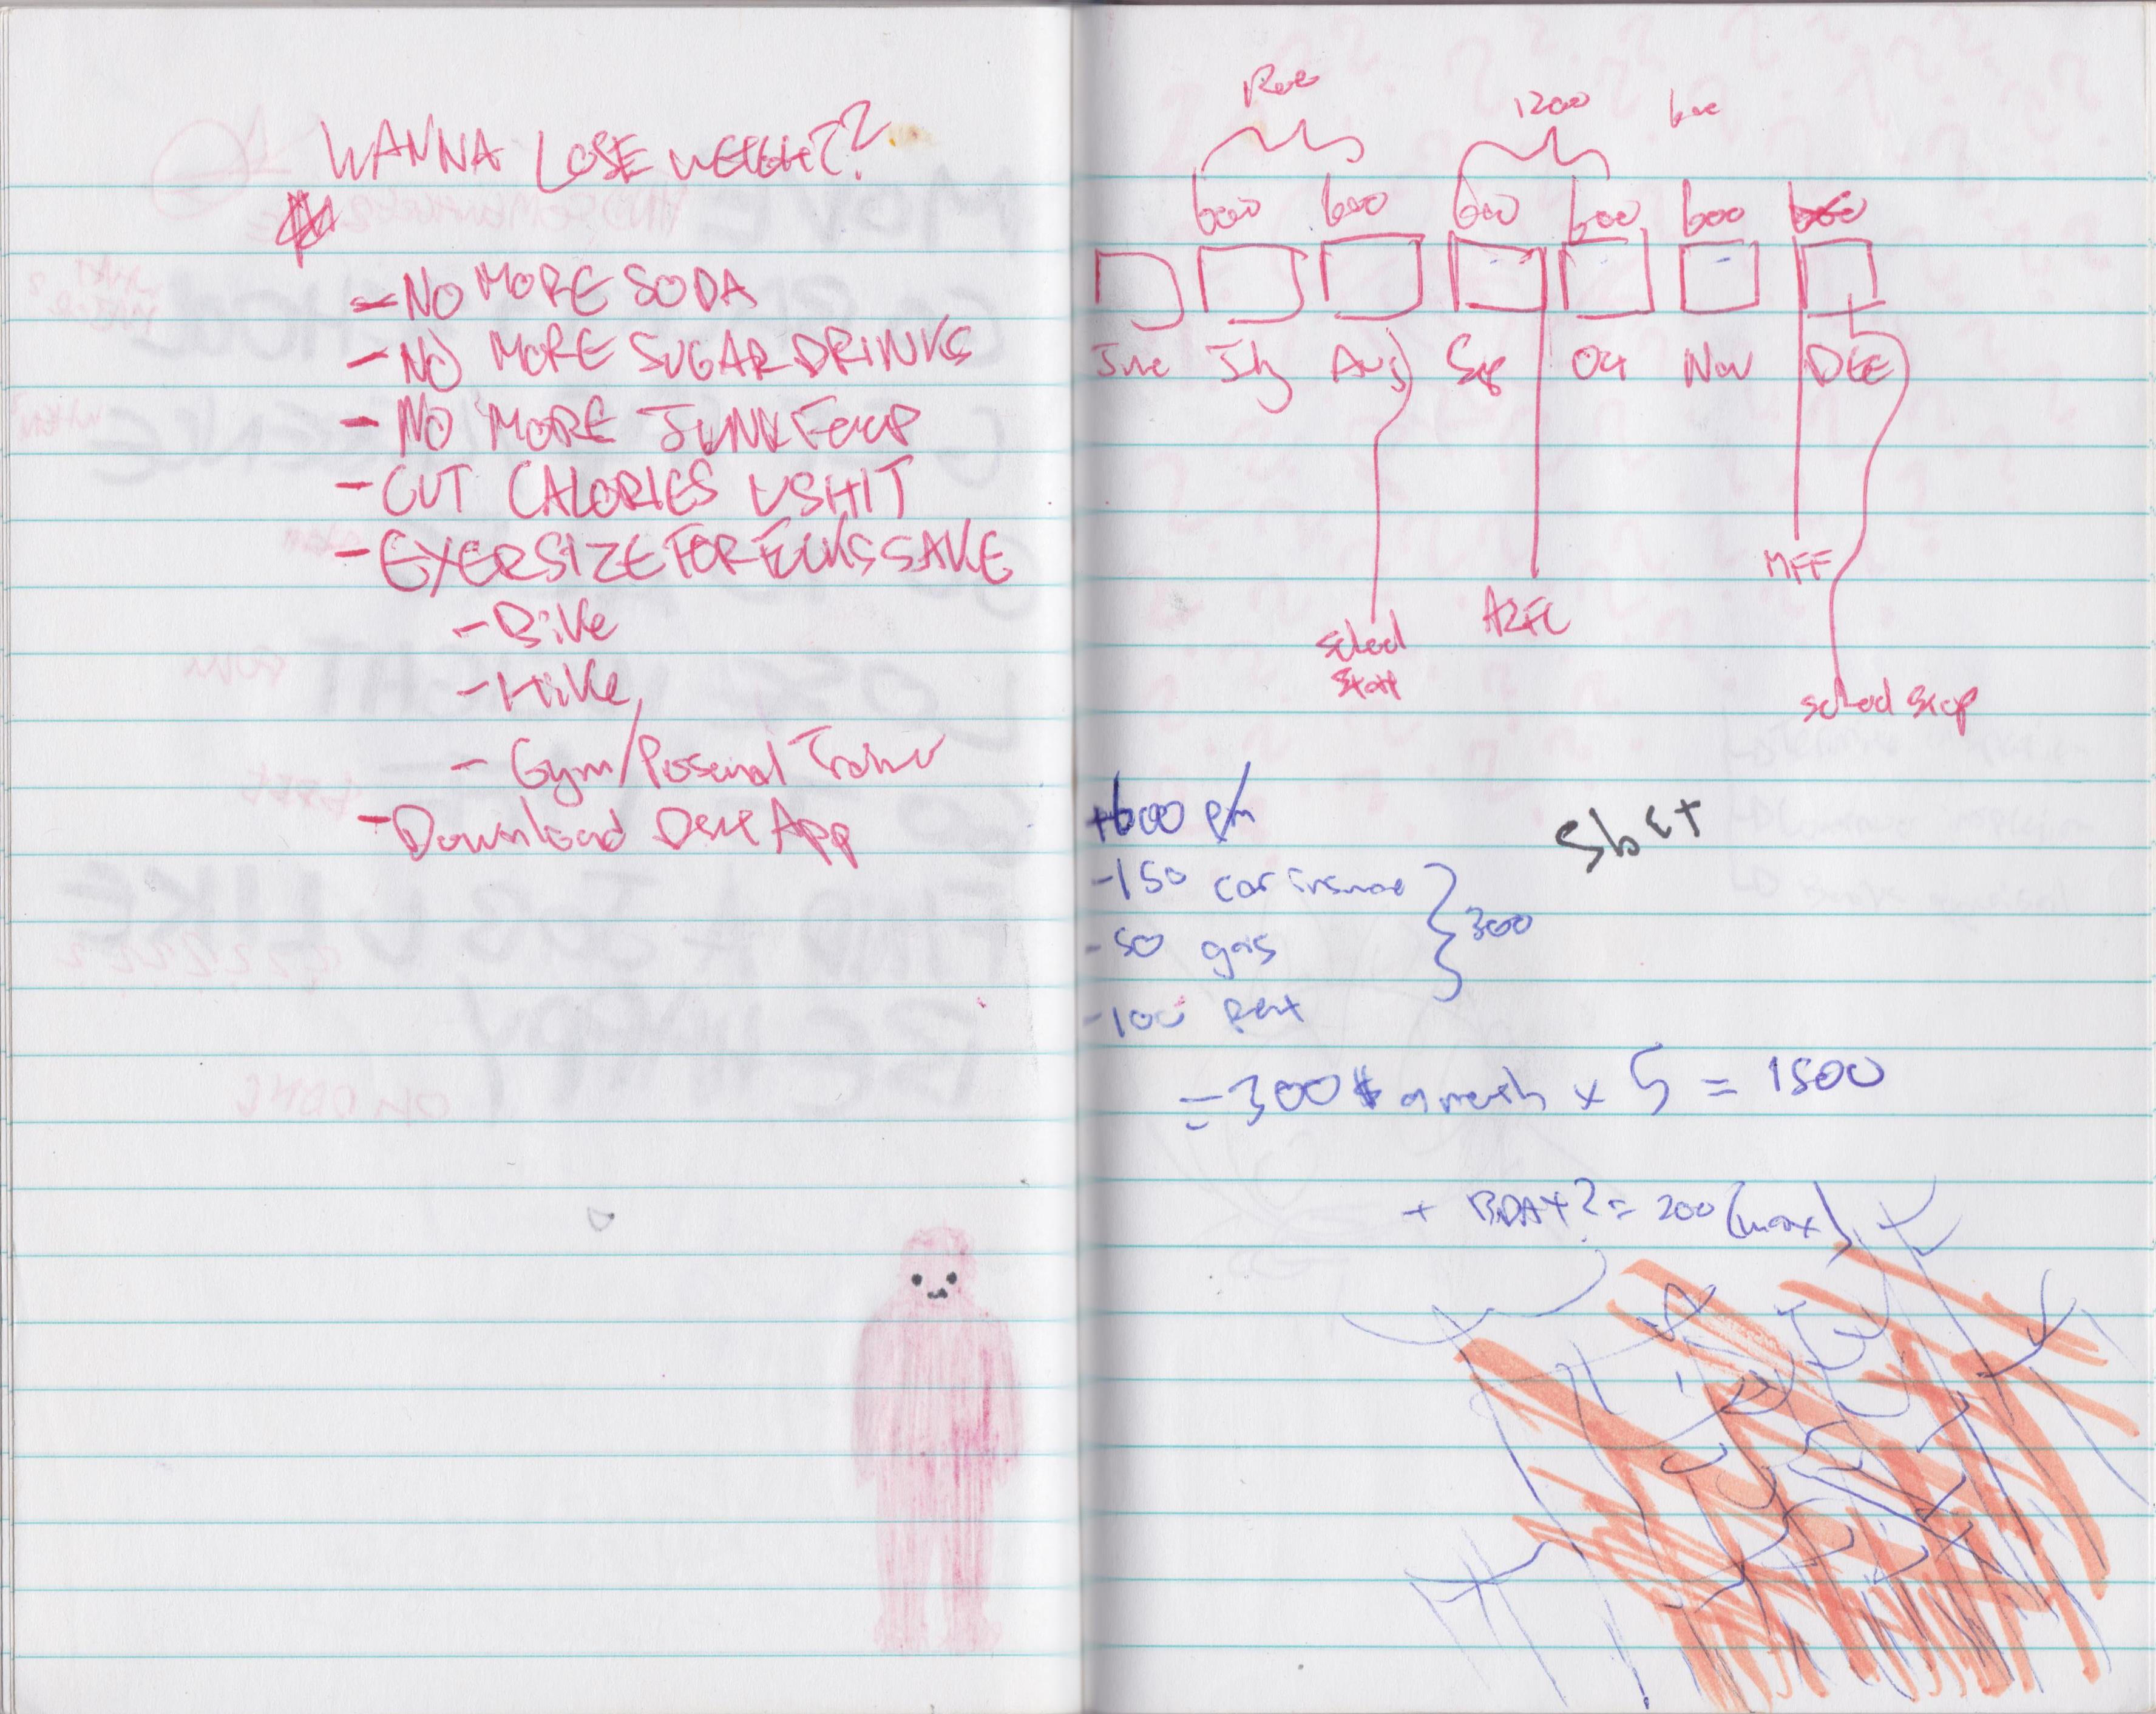 WANNA LOSE WEIGHT??
- NO MORE SODA
- NO MORE SUGAR DRINKS
- NO MORE JUNK
- CUT CALORIES
- EXERSIZE FOR FUCKS SAKE
- Bike
- Hike
- Gym/
- Download App
1200 600
600 600 600 600 600 600
June July Aug Sep Oct Nov DEC
MFF
AZFC
School
Start
school stop
+600 p/m
-150 car
-50 gas
300
-100 Rent
= 300 $ a month x 5 = 1500
+ BDAY? = 200 (max)